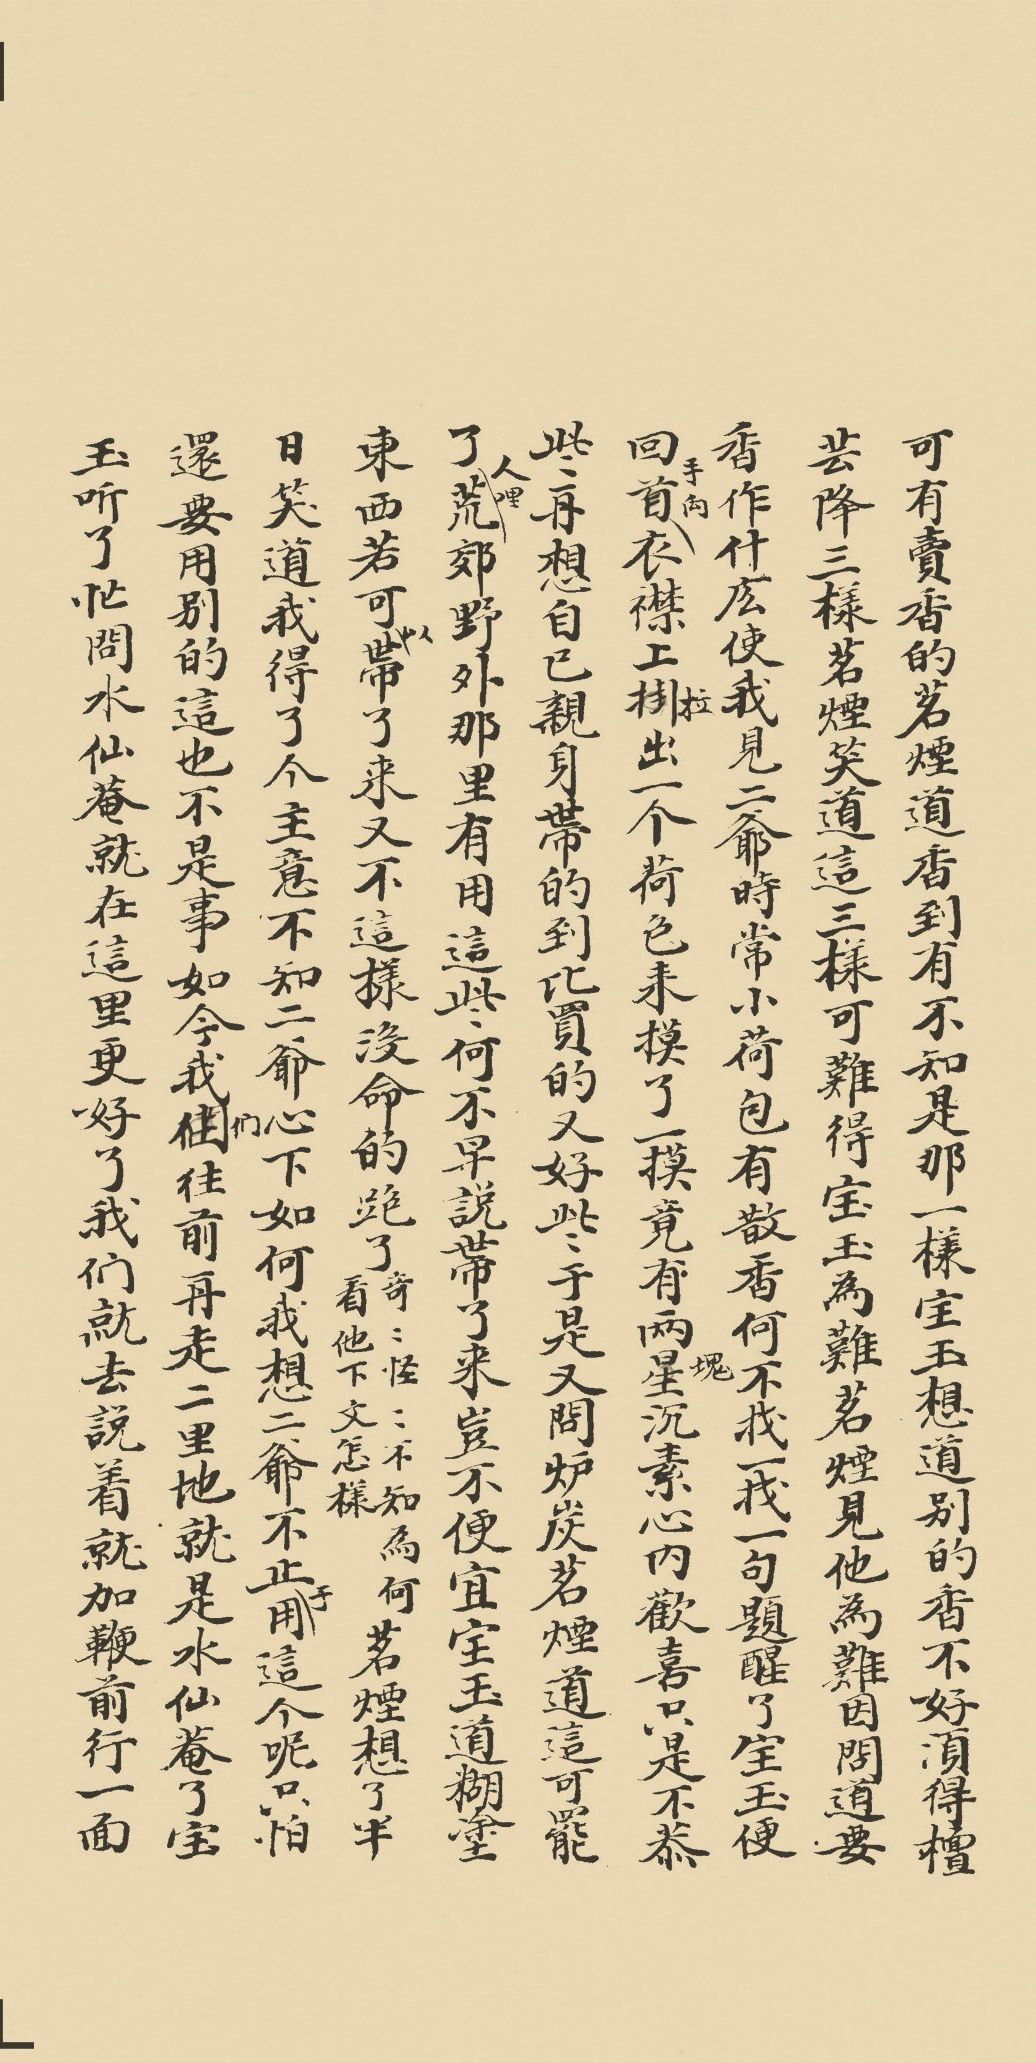 可有賣香的茗煙道香到有不知是那一樣宝玉想道别的香不好湏得檀
芸降三樣茗煙笑道這三樣可難得宝玉為難茗煙見他為難因問道要
香作什広使我見二爺時常小荷包有散香何不找一找一句題醒了宝玉便
回首衣襟上掛出一个荷包来摸了一摸竟有两星沉素心内歡喜只是不恭
手向
拉
塊
些再想自已親身帶的到比買的又好些于是又問炉炭茗煙道這可罷
了荒郊野外那里有用這些何不早説帶了来豈不便宜宝玉道糊塗
人哩
東西若可帶了来又不這樣没命的跑了
以
奇〻怪〻不知為何
看他下文怎樣
茗煙想了半
日笑道我得了个主意不知二爺心下如何我想二爺不止用這个呢只怕
于
還要用别的這也不是事如今我們往前再走二里地就是水仙菴了宝
们
玉听了忙問水仙菴就在這里更好了我们就去説着就加鞭前行一面